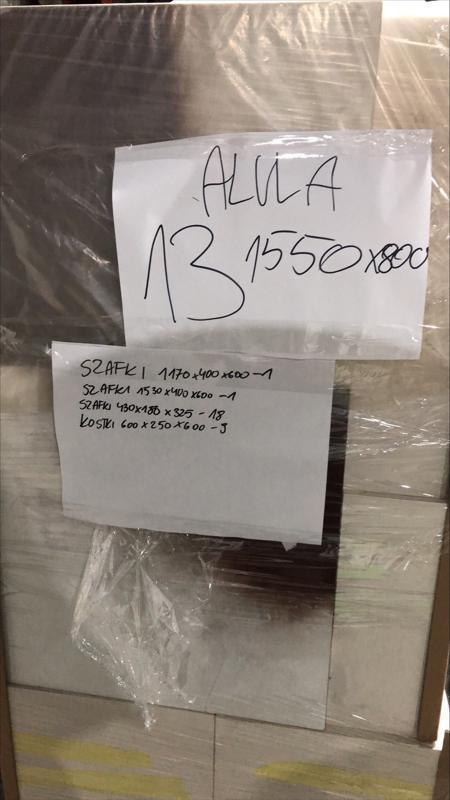 ALULA
13 1550x800
SZAFKI 1170x400x600-1
SZAFKI 1530x400x600-1
SZAFKI 430x180x325-18
KOSTKI 600x250x600-9